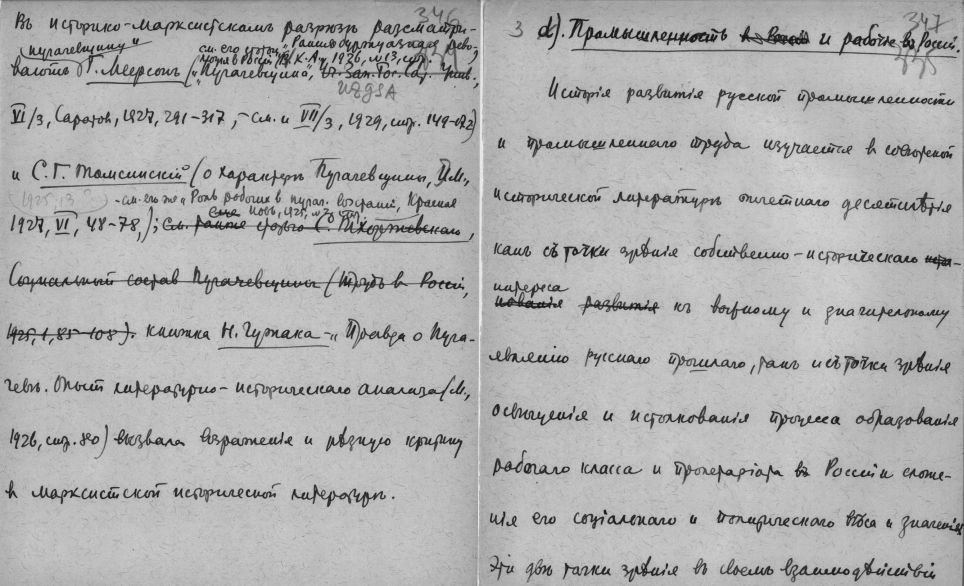 346
Въ историко-марксистскомъ разрѣзѣ разсматри-
"Пугачевщину" см. его статью "Ранняя буржуазная рево-
ваютъ Г. Меерсонъ ("Пугачевщина",
VI/3, Саратов, 1927, 291-317, - см. и VII/3, 1929, стр. 149-172)
и С. Г. Томсинскій (О характерѣ Пугачевщины, И.М.,
- см. его же "Роль рабочих в пугач. возстаніи, Красная
1927, VI, 48-78,); см. также статью С. Пхоржевскаго,
Соціальный состав Пугачевщины (Трудъ в Россіи,
1925, 1, 85-108). Книжка Н. Чужака - "Правда о Пуга-
чевѣ. Опыт литературно-историческаго анализа (М.,
1926, стр. 80) вызвала возраженія и рѣзкую критику
в марксистской исторической литературѣ.
347
3 d). Промышленность в Россіи и рабочіе в Россіи.
Исторія развитія русской промышленности
и промышленнаго труда изучается в совѣтской
исторической литературѣ отчетнаго десятилѣтія
какъ съ точки зрѣнія собственно-историческаго
интереса
развитія къ важному и значительному
явленію русскаго прошлаго, такъ и съ точки зрѣнія
освѣщенія и истолкованія процесса образованія
рабочаго класса и пролетаріата в Россіи и сложе-
нія его соціальнаго и политическаго вѣса и значенія.
Эти двѣ точки зрѣнія в своемъ взаимодѣйствіи